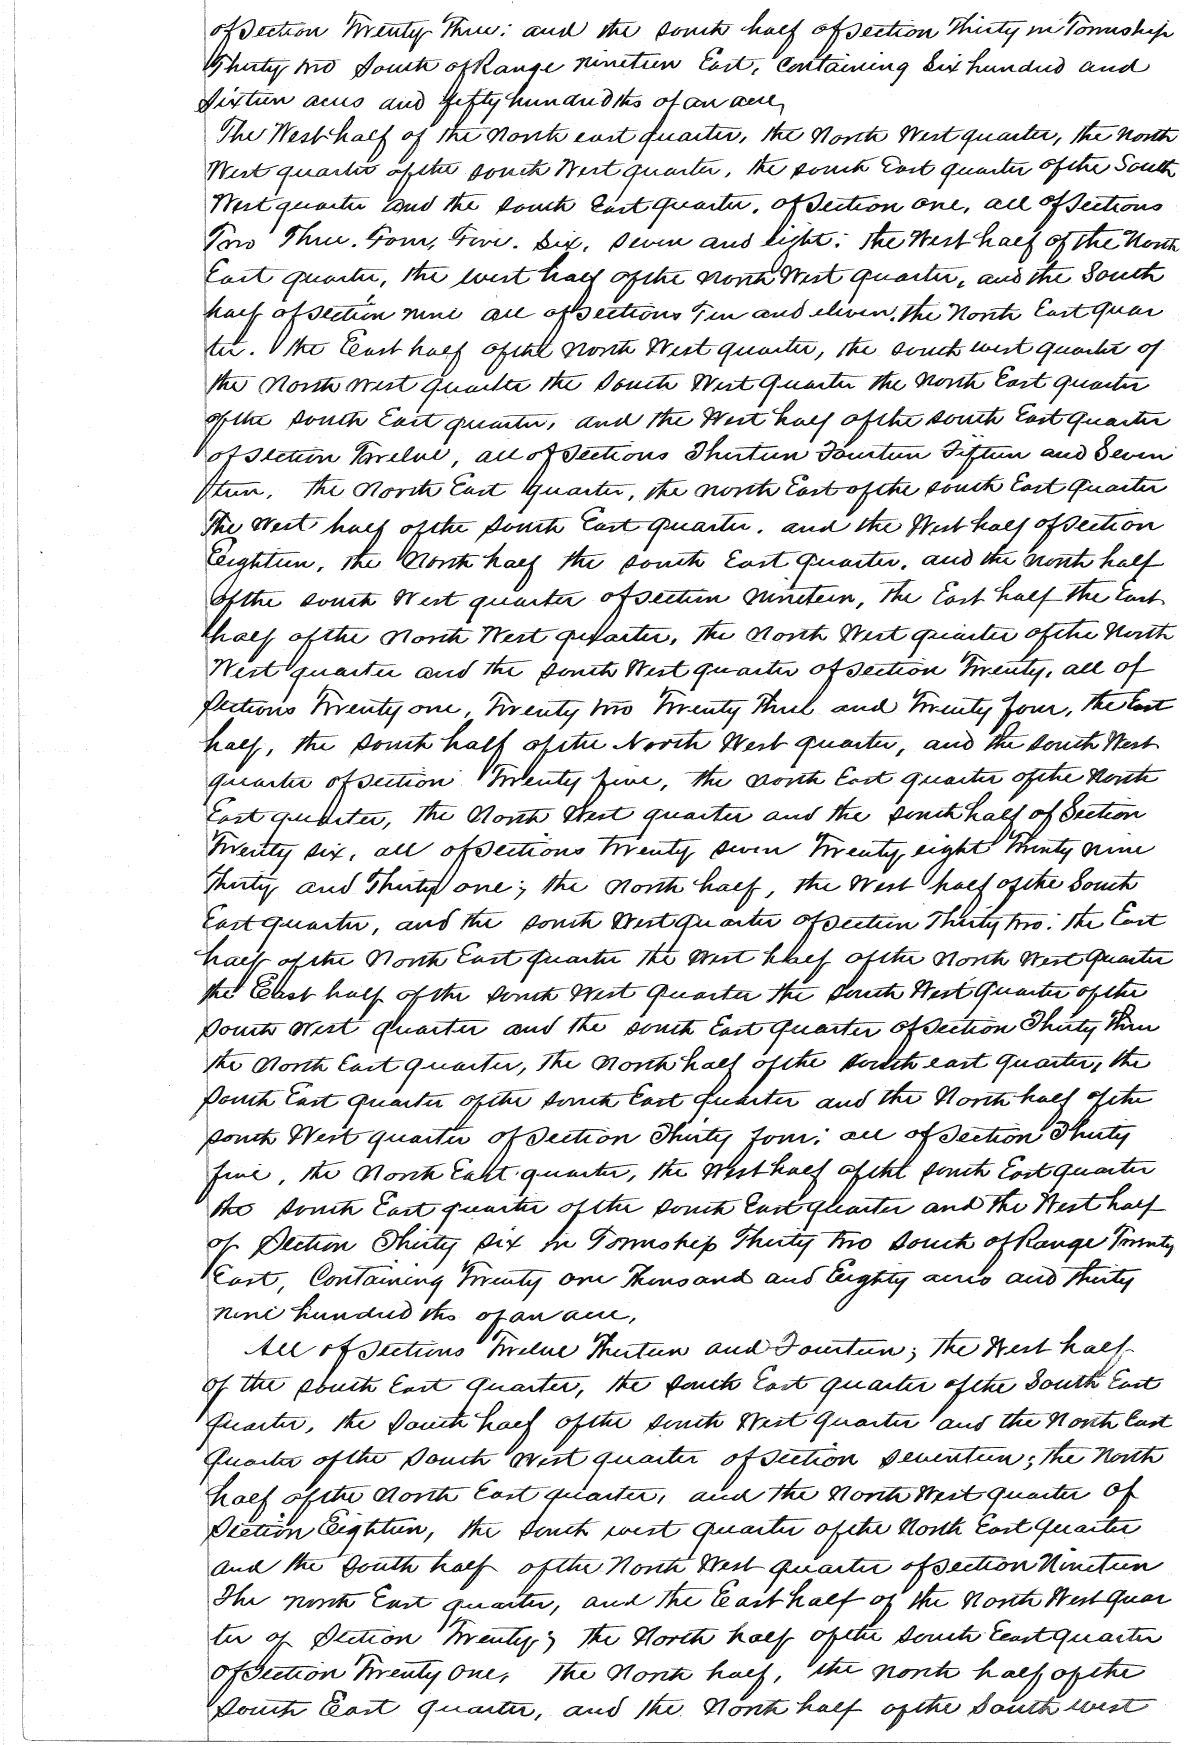 of Section Twenty Three: and the South half of Section Thirty in Township
Thirty two South of Range nineteen East, Containing Six hundred and
Sixteen acres and fifty hundredths of an acre,
The West half of the North east quarter, the North West quarter, the North
West quarter of the South West quarter, the South East quarter of the South
West quarter and the South East quarter, of Section one, all of Sections
Two Three. Four, Five. Six, Seven and Eight: the West half of the North
East quarter, the west half of the North West quarter, and the South
half of Section nine all of Sections Ten and eleven, the North East quar
ter. the East half of the North West quarter, the south west quarter of
the North West quarter the South West Quarter the North East quarter
of the South East quarter, and the West half of the South East Quarter
of Section Twelve, all of Sections Thirteen Fourteen Fifteen and Seven
teen, the North East quarter, the north East of the South East Quarter
The West half of the South East quarter. and the West half of Section
Eighteen, the North half the South East Quarter, and the north half
of the South West quarter of Section Nineteen, the East half the East
half of the North West quarter, the North West quarter of the North
West quarter and the South West quarter of Section Twenty, all of
Sections Twenty one, Twenty two Twenty Three and Twenty four, the East
half, the South half of the North West quarter, and the South West
quarter of Section Twenty five, the North East quarter of the North
East quarter, the North West quarter and the South half of Section
Twenty six, all of Sections Twenty seven Twenty eight Twenty nine
Thirty and Thirty one; the North half, the West half of the South
East quarter, and the South West quarter of Section Thirty two: the East
half of the North East Quarter the West half of the North West Quarter
the East half of the South West Quarter the South West Quarter of the
South West quarter and the South East Quarter of Section Thirty Three
the North East quarter, the North half of the South east quarter, the
South East quarter of the South East Quarter and the North half of the
South West quarter of Section Thirty four; all of Section Thirty
five, the North East quarter, the West half of the South East quarter
the South East quarter of the South East quarter and the West half
of Section Thirty Six in Township Thirty two South of Range Twenty
East, Containing Twenty one Thousand and Eighty acres and thirty
nine hundredths of an acre,
All of Sections Twelve Thirteen and Fourteen; the West half
of the South East Quarter, the South East quarter of the South East
Quarter, the South half of the South West Quarter and the North East
Quarter of the South West quarter of Section Seventeen; the North
half of the North East quarter, and the North West quarter of
Section Eighteen, the South west quarter of the North East Quarter
and the South half of the North West quarter of Section Nineteen
The North East quarter, and the East half of the North West quar
ter of Section Twenty; the North half of the South East quarter
of Section Twenty One, the North half, the north half of the
South East quarter, and the North half of the South west